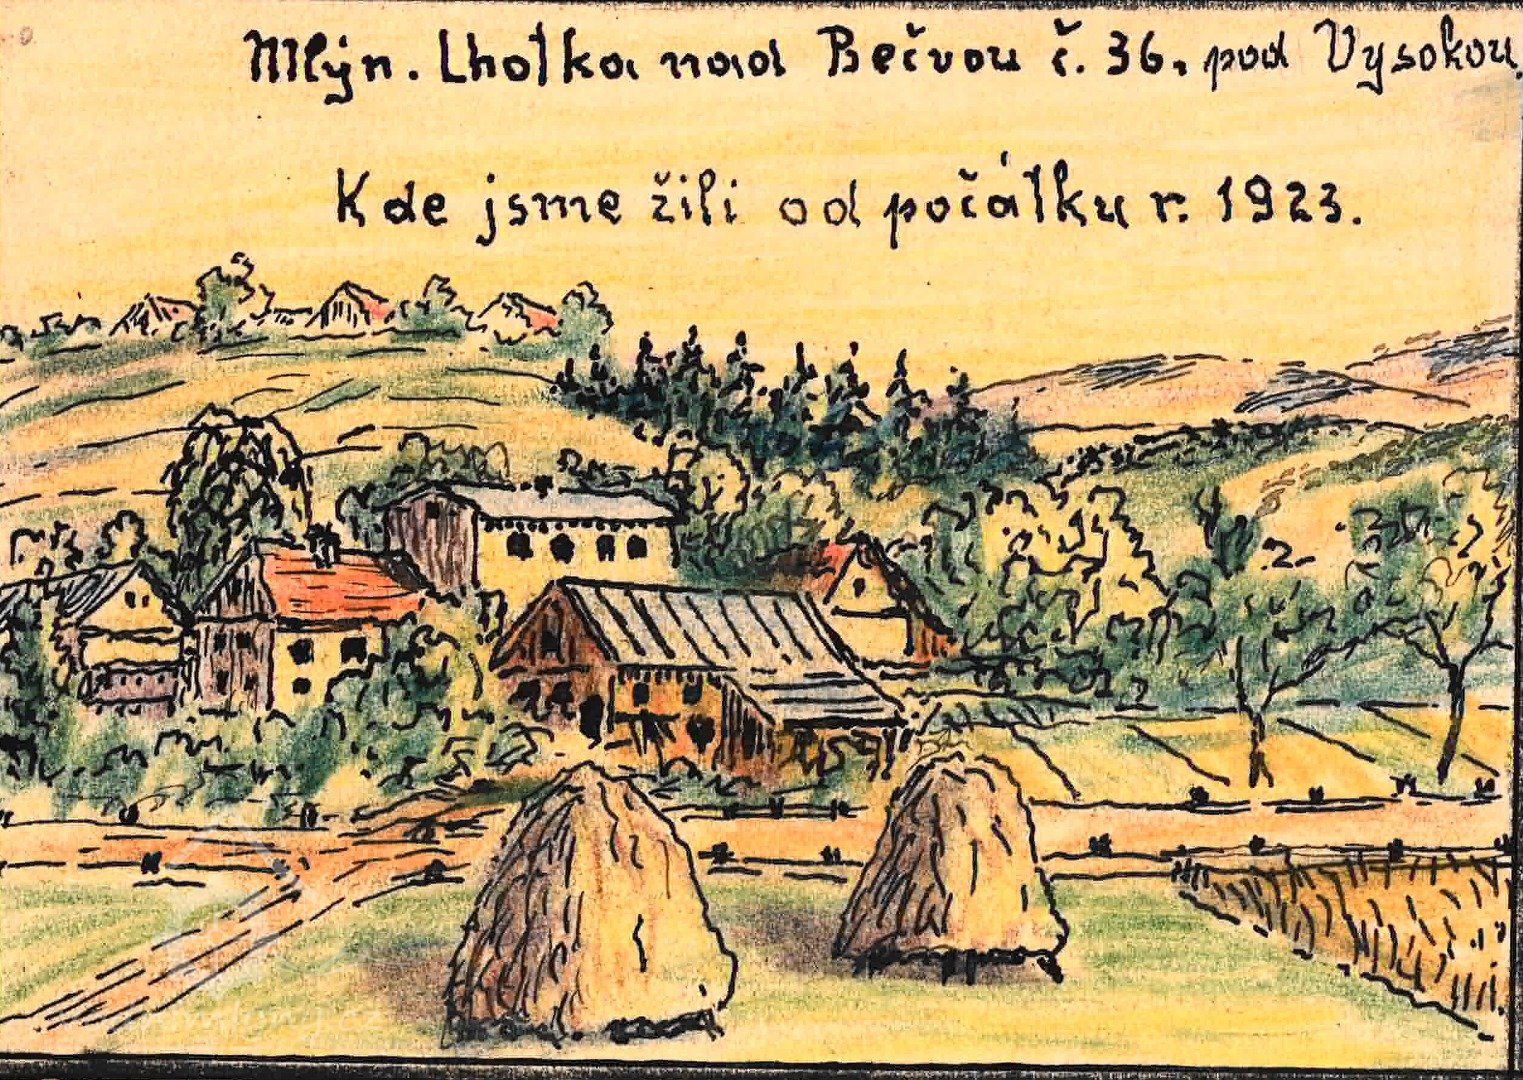 Mlýn. Lhotka nad Bečvou č. 36. pod Vysokou.
Kde jsme žili od počátku r. 1923.